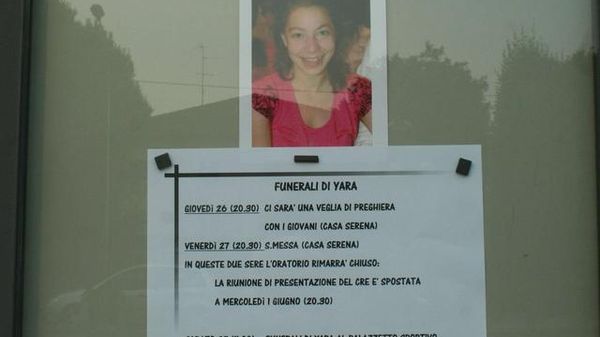 FUNERALI DI YARA
GIOVEDÌ 26 (20.30) CI SARA' UNA VEGLIA DI PREGHIERA
CON I GIOVANI (CASA SERENA)
VENERDÌ 27 (20.30) S.MESSA (CASA SERENA)
IN QUESTE DUE SERE L'ORATORIO RIMARRA' CHIUSO:
LA RIUNIONE DI PRESENTAZIONE DEL CRE E' SPOSTATA
A MERCOLEDÌ 1 GIUGNO (20.30)
FUNERALI DI YARA AL PALAZZETTO SPORTIVO